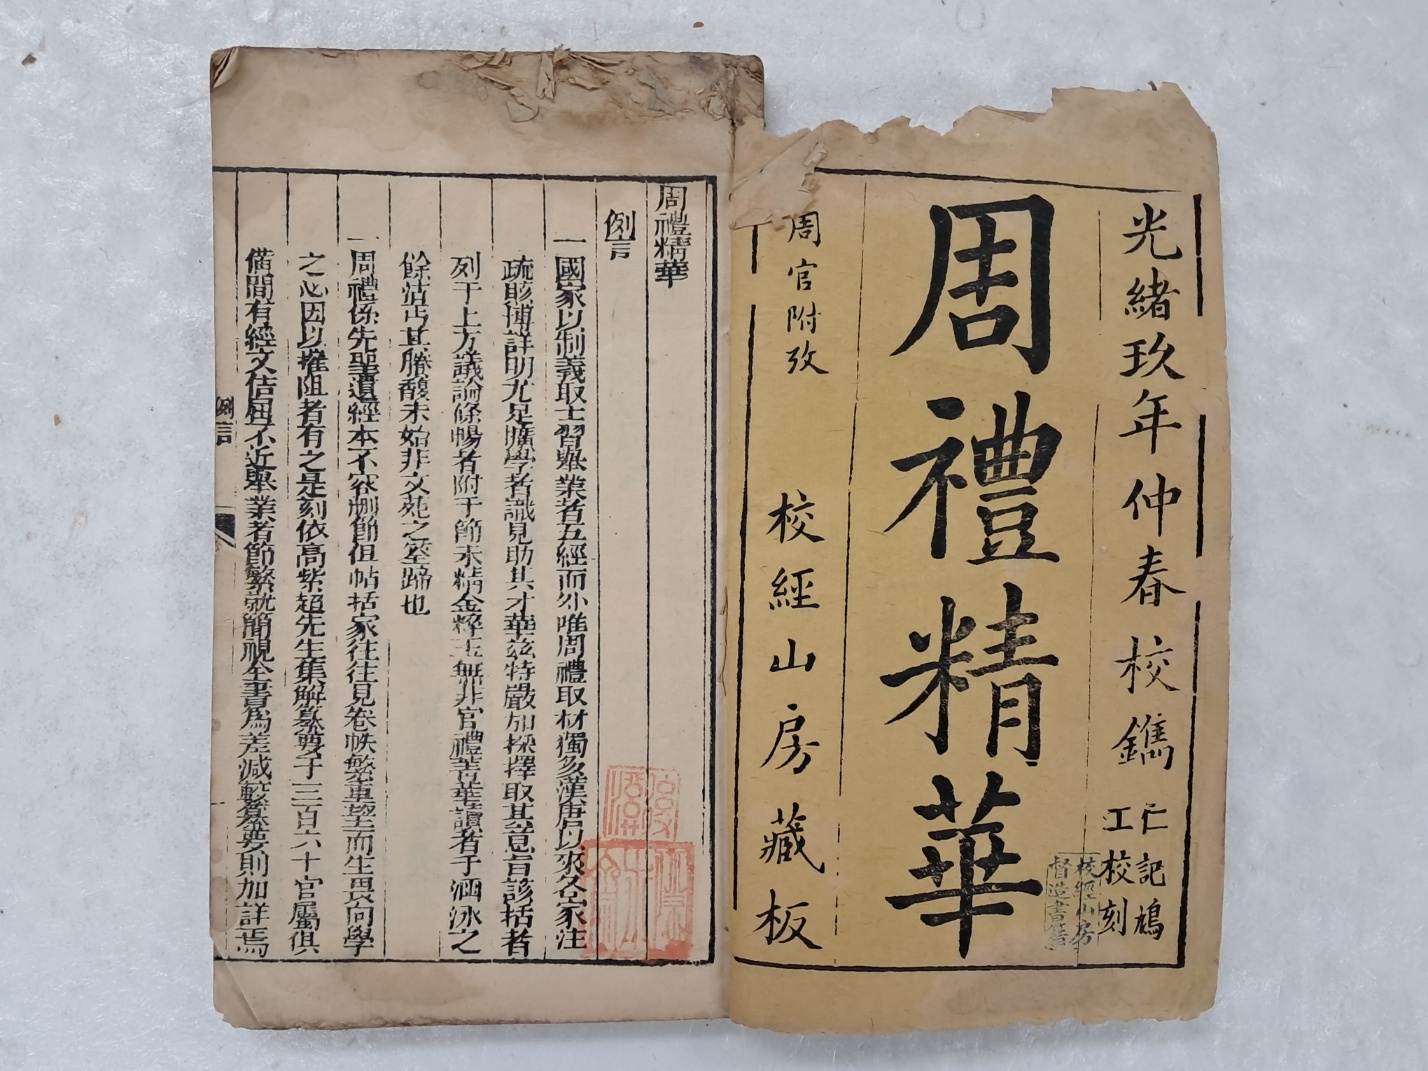 光緒玖年仲春校鐫
仁記鳩
工校刻
校經山房
督造書籍
周禮精華
周官附攷
校經山房藏板
周禮精華
例言
一國家以制義取士習舉業者五經而外唯周禮取材獨多漢唐以來名家註
疏賅博詳明尤足擴學者識見助其才華茲特嚴加採擇取其意旨該括者
列于上方議論條暢者附于節末精金粹玉無非官禮菁華讀者于涵泳之
餘沾丐其賸馥未始非文苑之筌蹄也
一周禮係先聖遺經本不容刪節但帖括家往往見卷帙繁重望而生畏向學
之心因以摧阻者有之是刻依高紫超先生集解纂要于三百六十官屬俱
備間有經文佶屈不近舉業者節繁就簡視全書為差減較纂要則加詳焉
例言